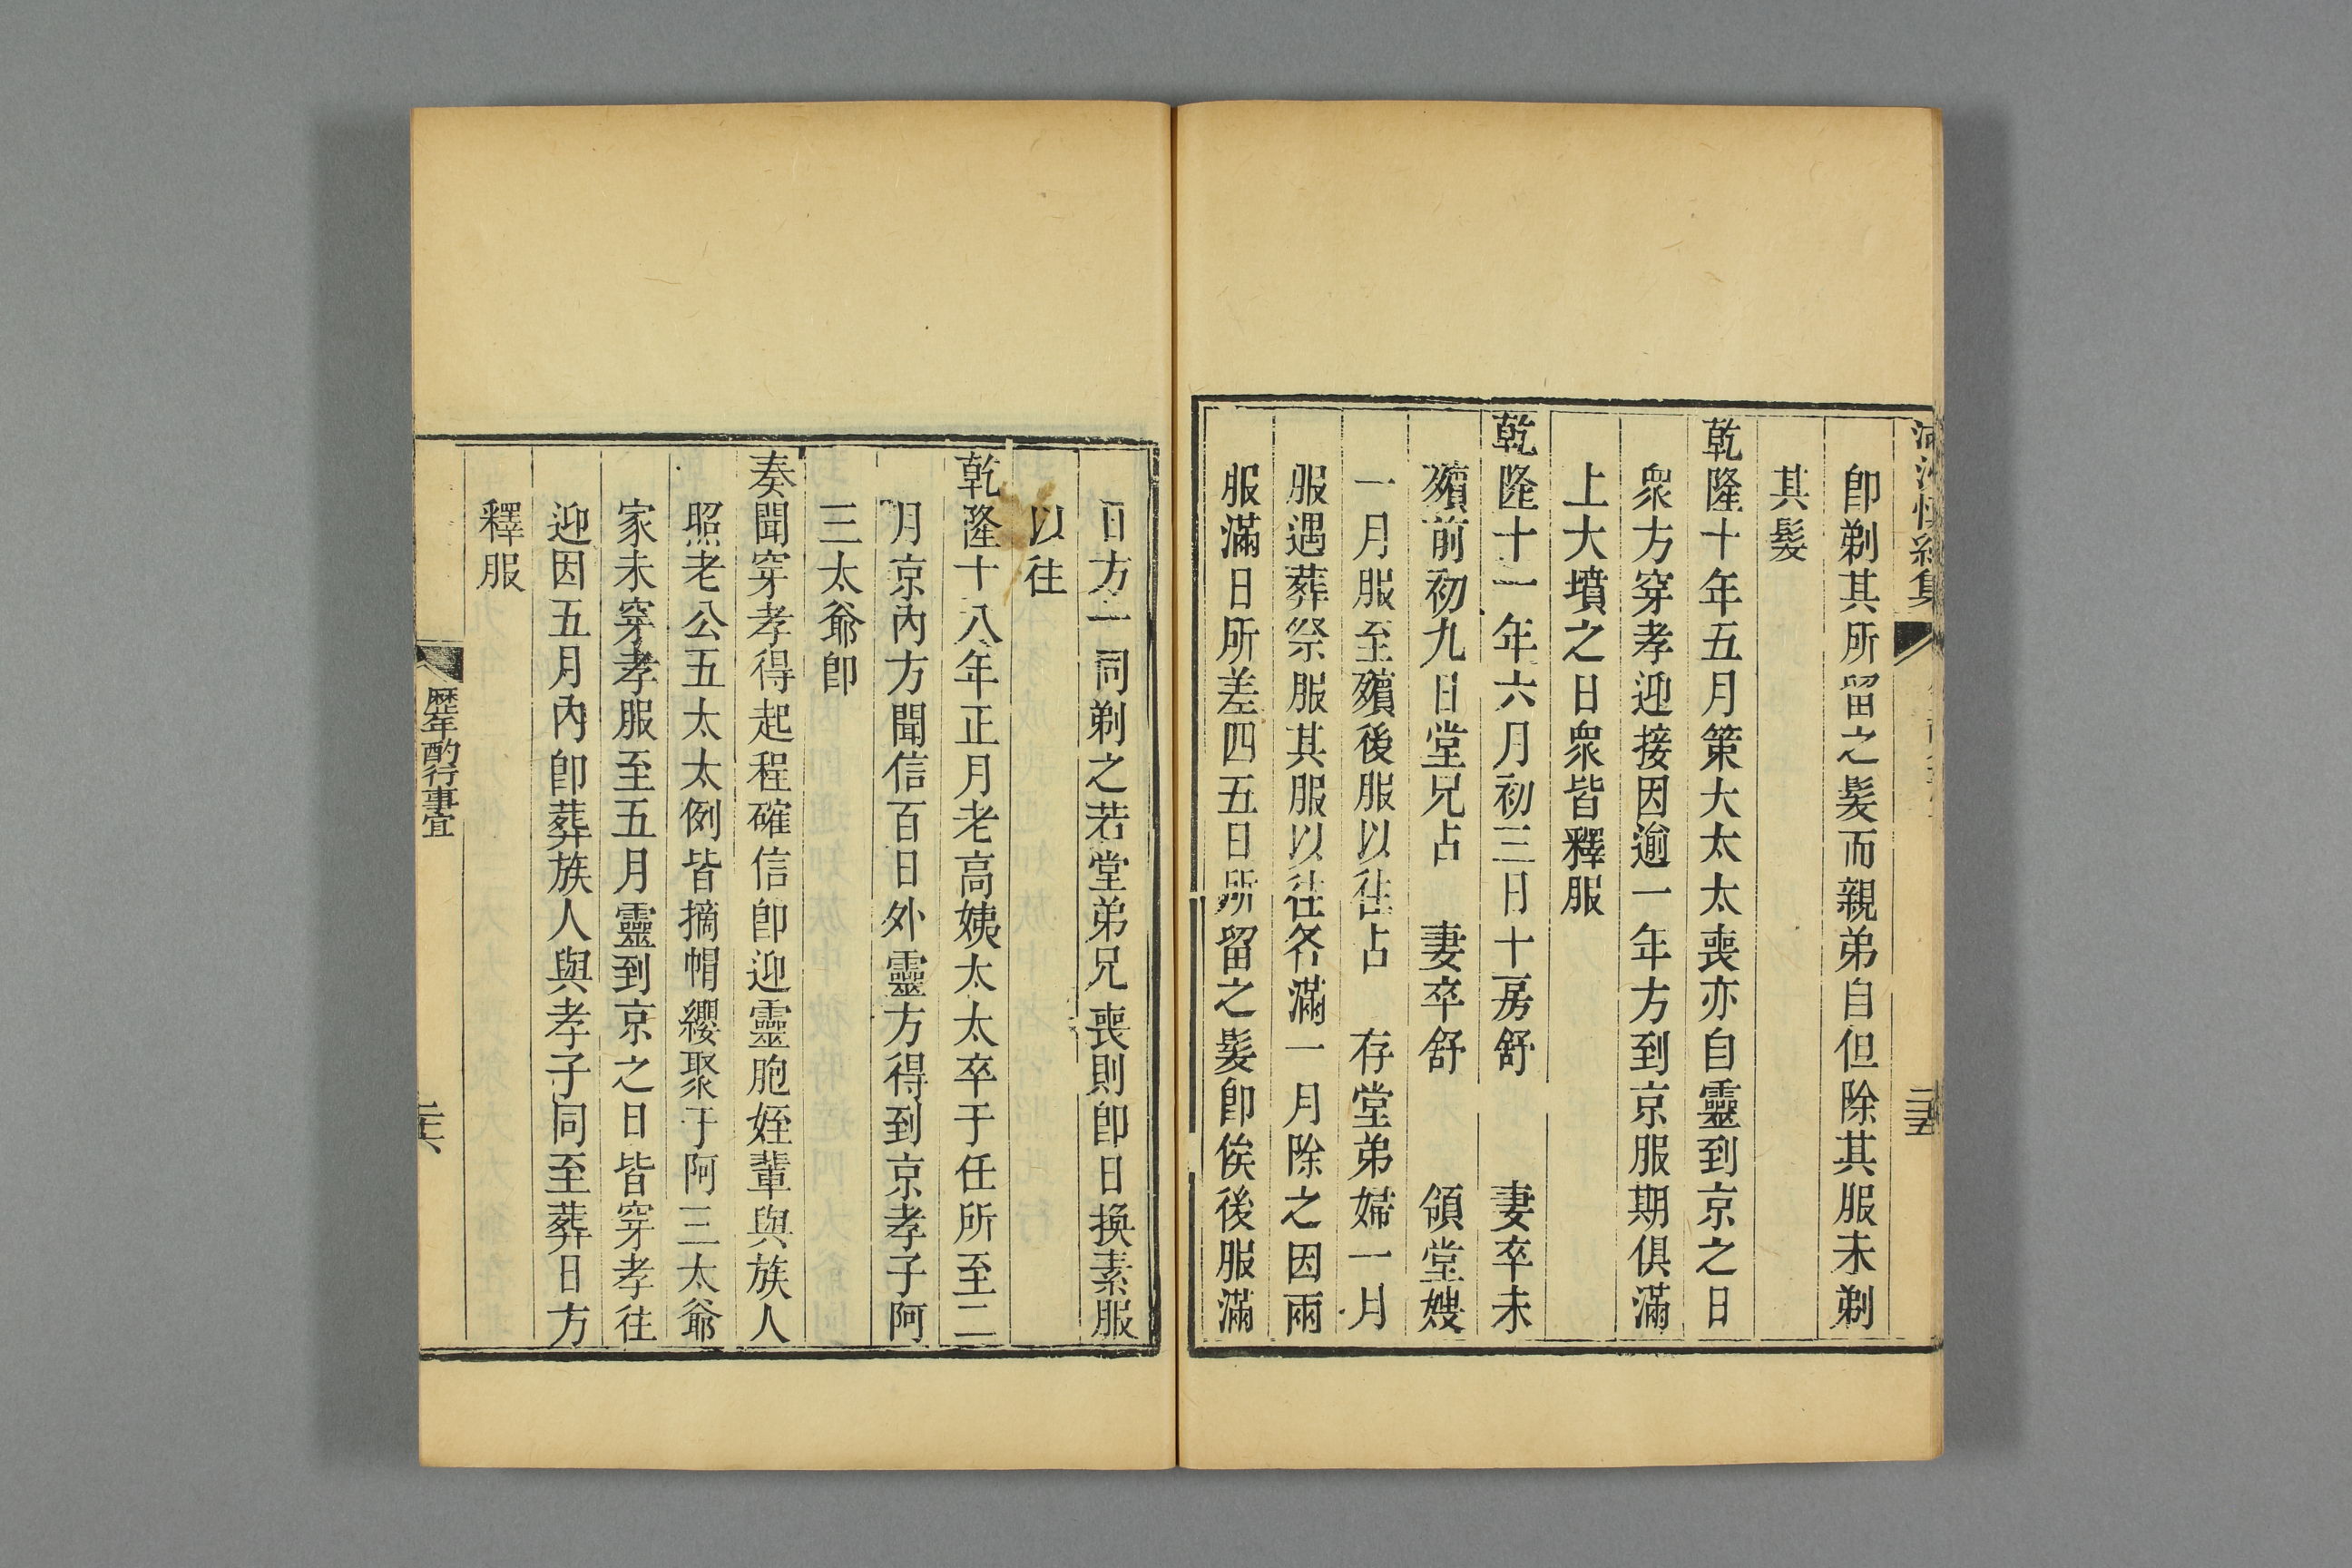 卽剃其所留之髮而親弟自但除其服未剃
其髮
乾隆十年五月策大太太喪亦自靈到京之日
衆方穿孝迎接因逾一年方到京服期俱滿
上大墳之日衆皆釋服
乾隆十一年六月初三日十房舒 妻卒未
殯前初九日堂兄占 妻卒舒 領堂嫂
一月服至殯後服以往占 存堂弟婦一月
服遇葬祭服其服以往各滿一月除之因兩
服滿日所差四五日所留之髮卽俟後服滿
日方一同剃之若堂弟兄喪則卽日換素服
以往
乾隆十八年正月老高姨太太卒于任所至二
月京內方聞信百日外靈方得到京孝子阿
三太爺卽
奏聞穿孝得起程確信卽迎靈胞姪輩與族人
照老公五太太例皆摘帽纓聚于阿三太爺
家未穿孝服至五月靈到京之日皆穿孝往
迎因五月內卽葬族人與孝子同至葬日方
釋服
歷年酌行事宜